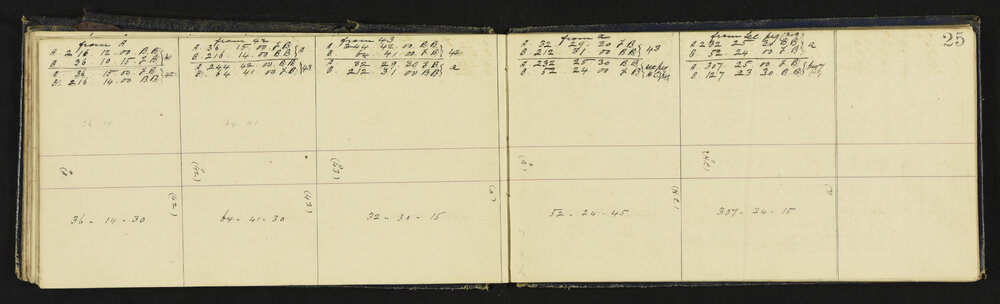 25
from A
A 216. 12.00 B B } 41
B 36 10.15 F B
A 36. 15.00 F B } 42
B 216. 14.00 B B
36 14
from 42
A 36. 15.00 F B } B
B 216 14.00 B B
A 244 42.00 B B } 43
B 64 41.00 F B
64 41
from 43
A 244 42.00 B B } 42
B 64 41.00 F B
A 32 29 30 F B } a
B 212 31 00 B B
from a
A 32 29. 30 F B } 43
B 212 31. 00 B B
A 232 25 30 B B
B 52 24 00 F B
from
A 232 25 30 B B } a
B 52 24 00 F B
A 307 25 00 F B
B 127 23 30 B B
(42)
(43)
(a)
36 - 14 - 30
(42)
64 - 41 - 30
(43)
32 - 30 - 15
(a)
52 - 24 - 45
307 - 24 - 15